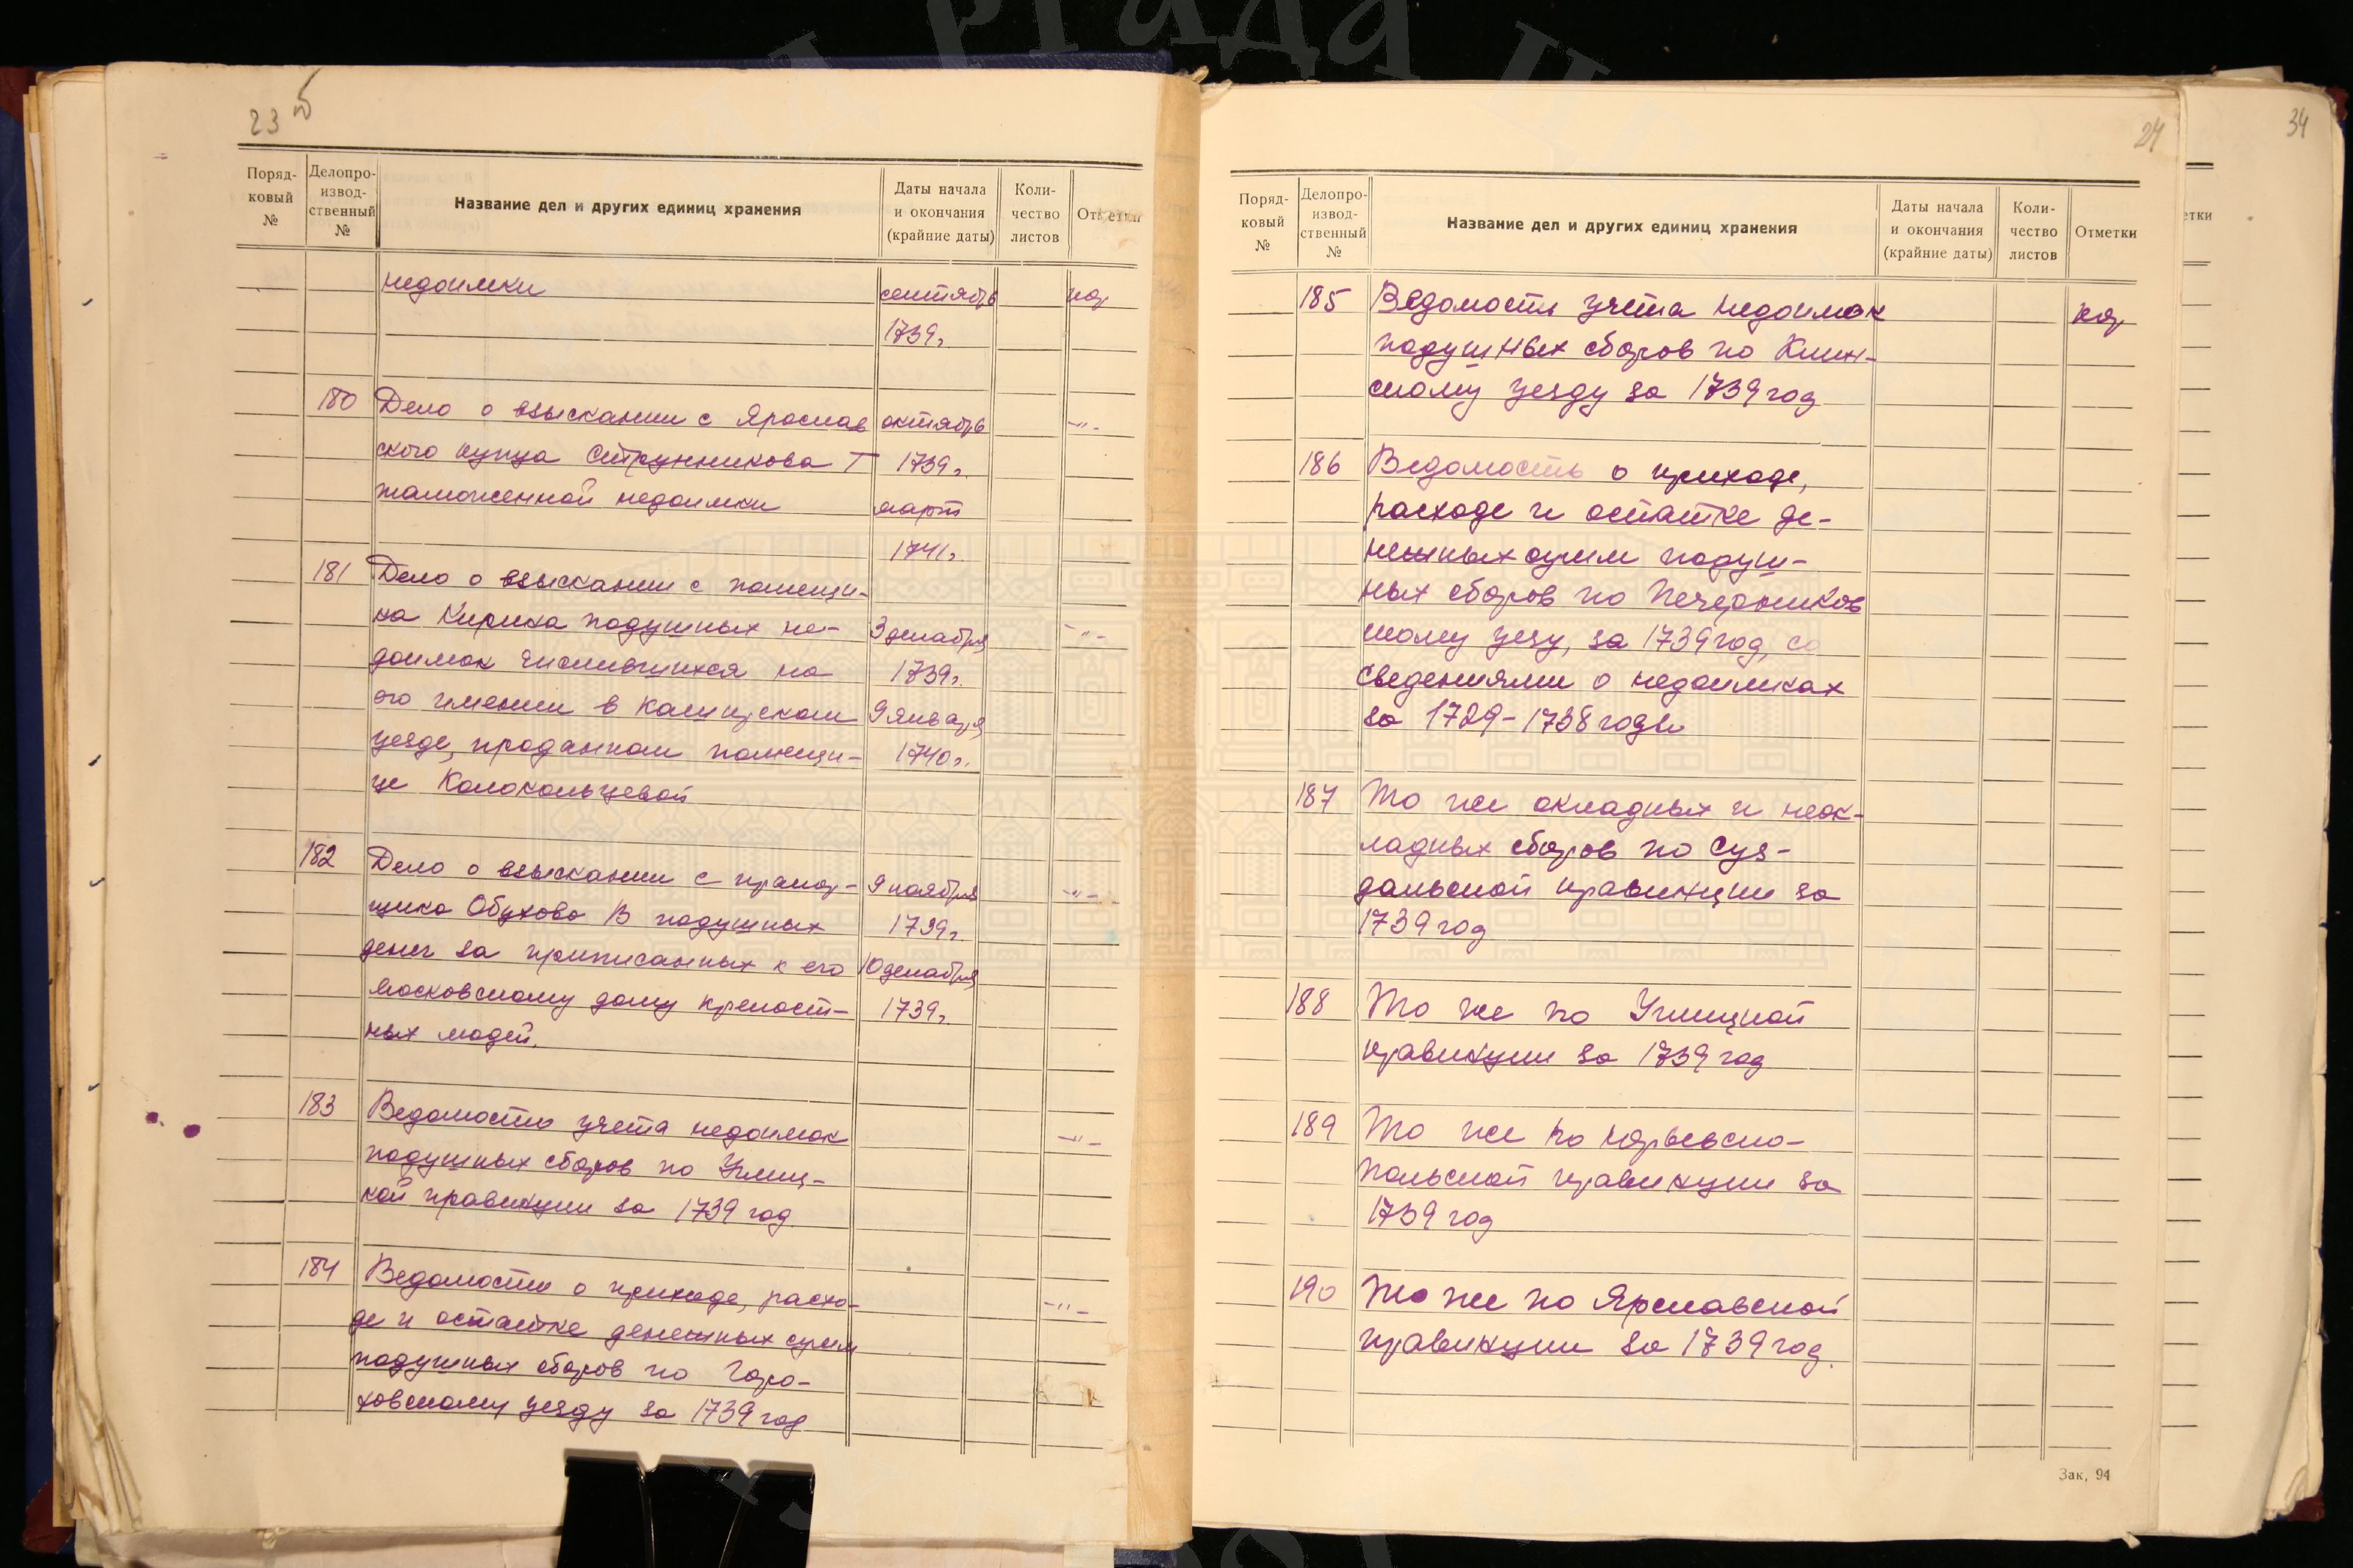 23
Поряд-
ковый
№
Делопро-
извод-
ственный
№
Название дел и других единиц хранения
Даты начала
и окончания
(крайние даты)
Коли-
чество
листов
Отметки
недоимки
сентябрь
1739г.
180
Дело о взыскании с Ярослав
ского купца Струнникова Т
таможенной недоимки
октябрь
1739г.
март
1741г.
-"-
181
Дело о взыскании с помещи-
ка Кирика подушных не-
доимок числившихся на
его имении в Каширском
уезде, проданном помещи-
це Колокольцевой
3 декабря
1739г.
9 января
1740г.
-"-
182
Дело о взыскании с прапор-
щика Обухова В подушных
денег за приписанных к его
московскому дому крепост-
ных людей.
9 ноября
1739г.
10 декабря
1739г.
-"-
183
Ведомость учета недоимок
подушных сборов по Углиц-
кой провинции за 1739 год
-"-
184
Ведомость о приходе, расхо-
де и остатке денежных сумм
подушных сборов по Горо-
ховскому уезду за 1739 год
-"-
24
Поряд-
ковый
№
Делопро-
извод-
ственный
№
Название дел и других единиц хранения
Даты начала
и окончания
(крайние даты)
Коли-
чество
листов
Отметки
185
Ведомость учета недоимок
подушных сборов по Клин-
скому уезду за 1739 год
186
Ведомость о приходе,
расходе и остатке де-
нежных сумм подуш-
ных сборов по Печерников
скому уезу, за 1739 год, со
сведениями о недоимках
за 1729-1738 годы
187
То же окладных и неок-
ладных сборов по Суз-
дальской провинции за
1739 год
188
То же по Углицкой
провинции за 1739 год
189
То же по Юрьевско-
польской провинции за
1739 год
190
То же по Ярославской
провинции за 1739 год.
Зак. 94
34
етки